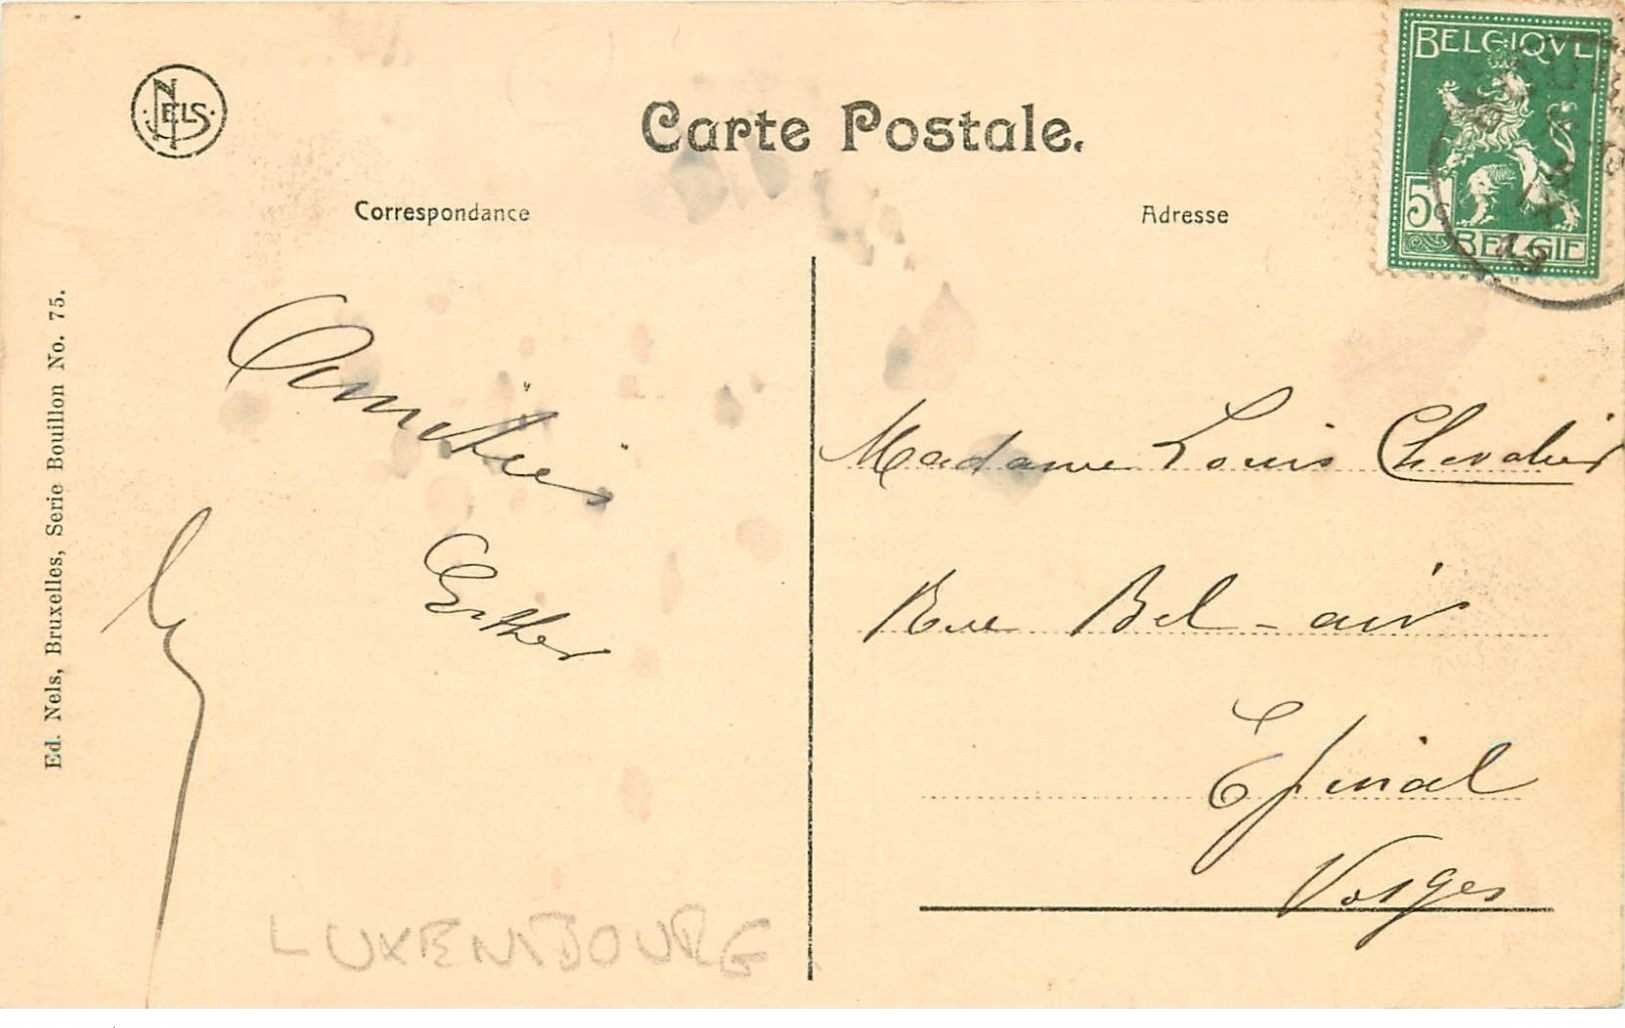 NELS
Carte Postale.
Correspondance
Adresse
BELGIQVE
5c
BELGIË
IX
Amitiés
Esther
Madame Louis Chevalier
Rue Bel-air
Epinal
Vosges
Ed. Nels, Bruxelles, Serie Bouillon No. 75.
LUXEMBOURG